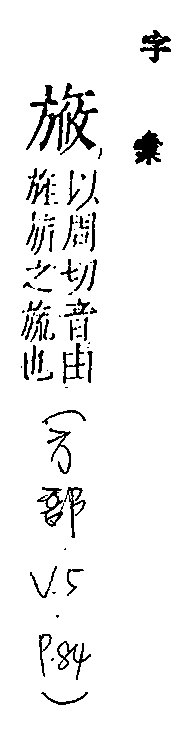 字彙
以周切音由
旌旂之旒也
(方部.V.5.P.84)